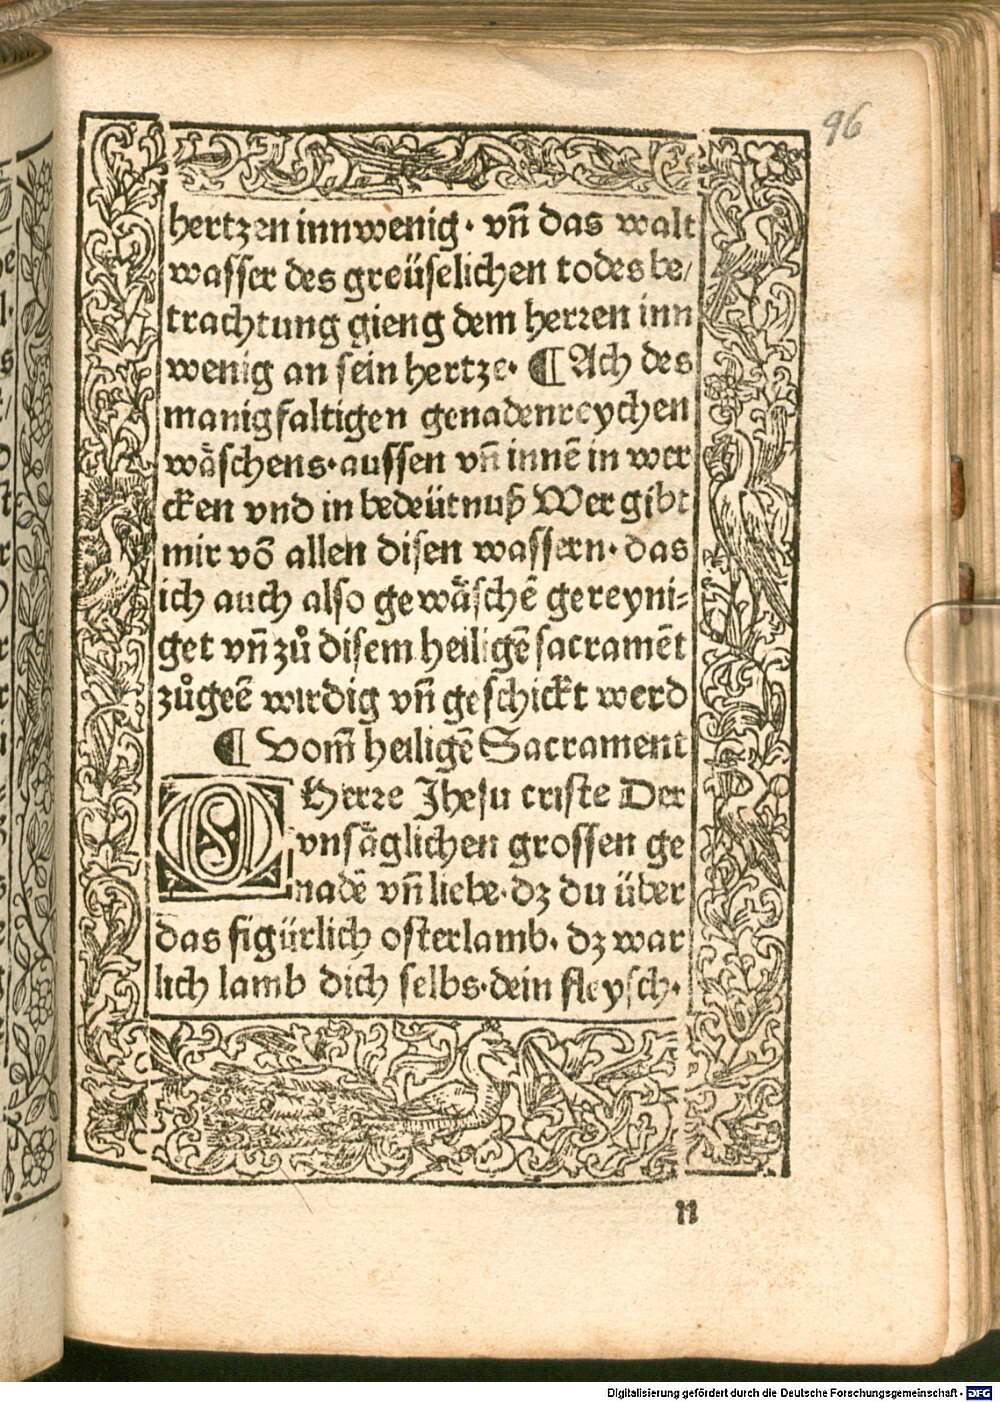 96
hertzen innwenig · vn̄ das walt
wasser des greüselichen todes be/
trachtung gieng dem herꝛen inn
wenig an sein hertze · ¶ Ach des
manigfaltigen genadenreychen
wäschens · aussen vn̄ innē in wer
cken vnd in bedeütnuß Wer gibt
mir võ allen disen wassern · das
ich auch also gewäschē gereyni⸗
get vn̄ zů disem heiligē sacramēt
zůgeē wirdig vn̄ geschickt werd
¶ Vom̄ heiligē Sacrament
O Herꝛe Jhesu criste Der
vnsäglichen grossen ge
nadē vn̄ liebe · dz du über
das figürlich osterlamb · dz war
lich lamb dich selbs · dein fleysch ·
n
Digitalisierung gefördert durch die Deutsche Forschungsgemeinschaft - DFG